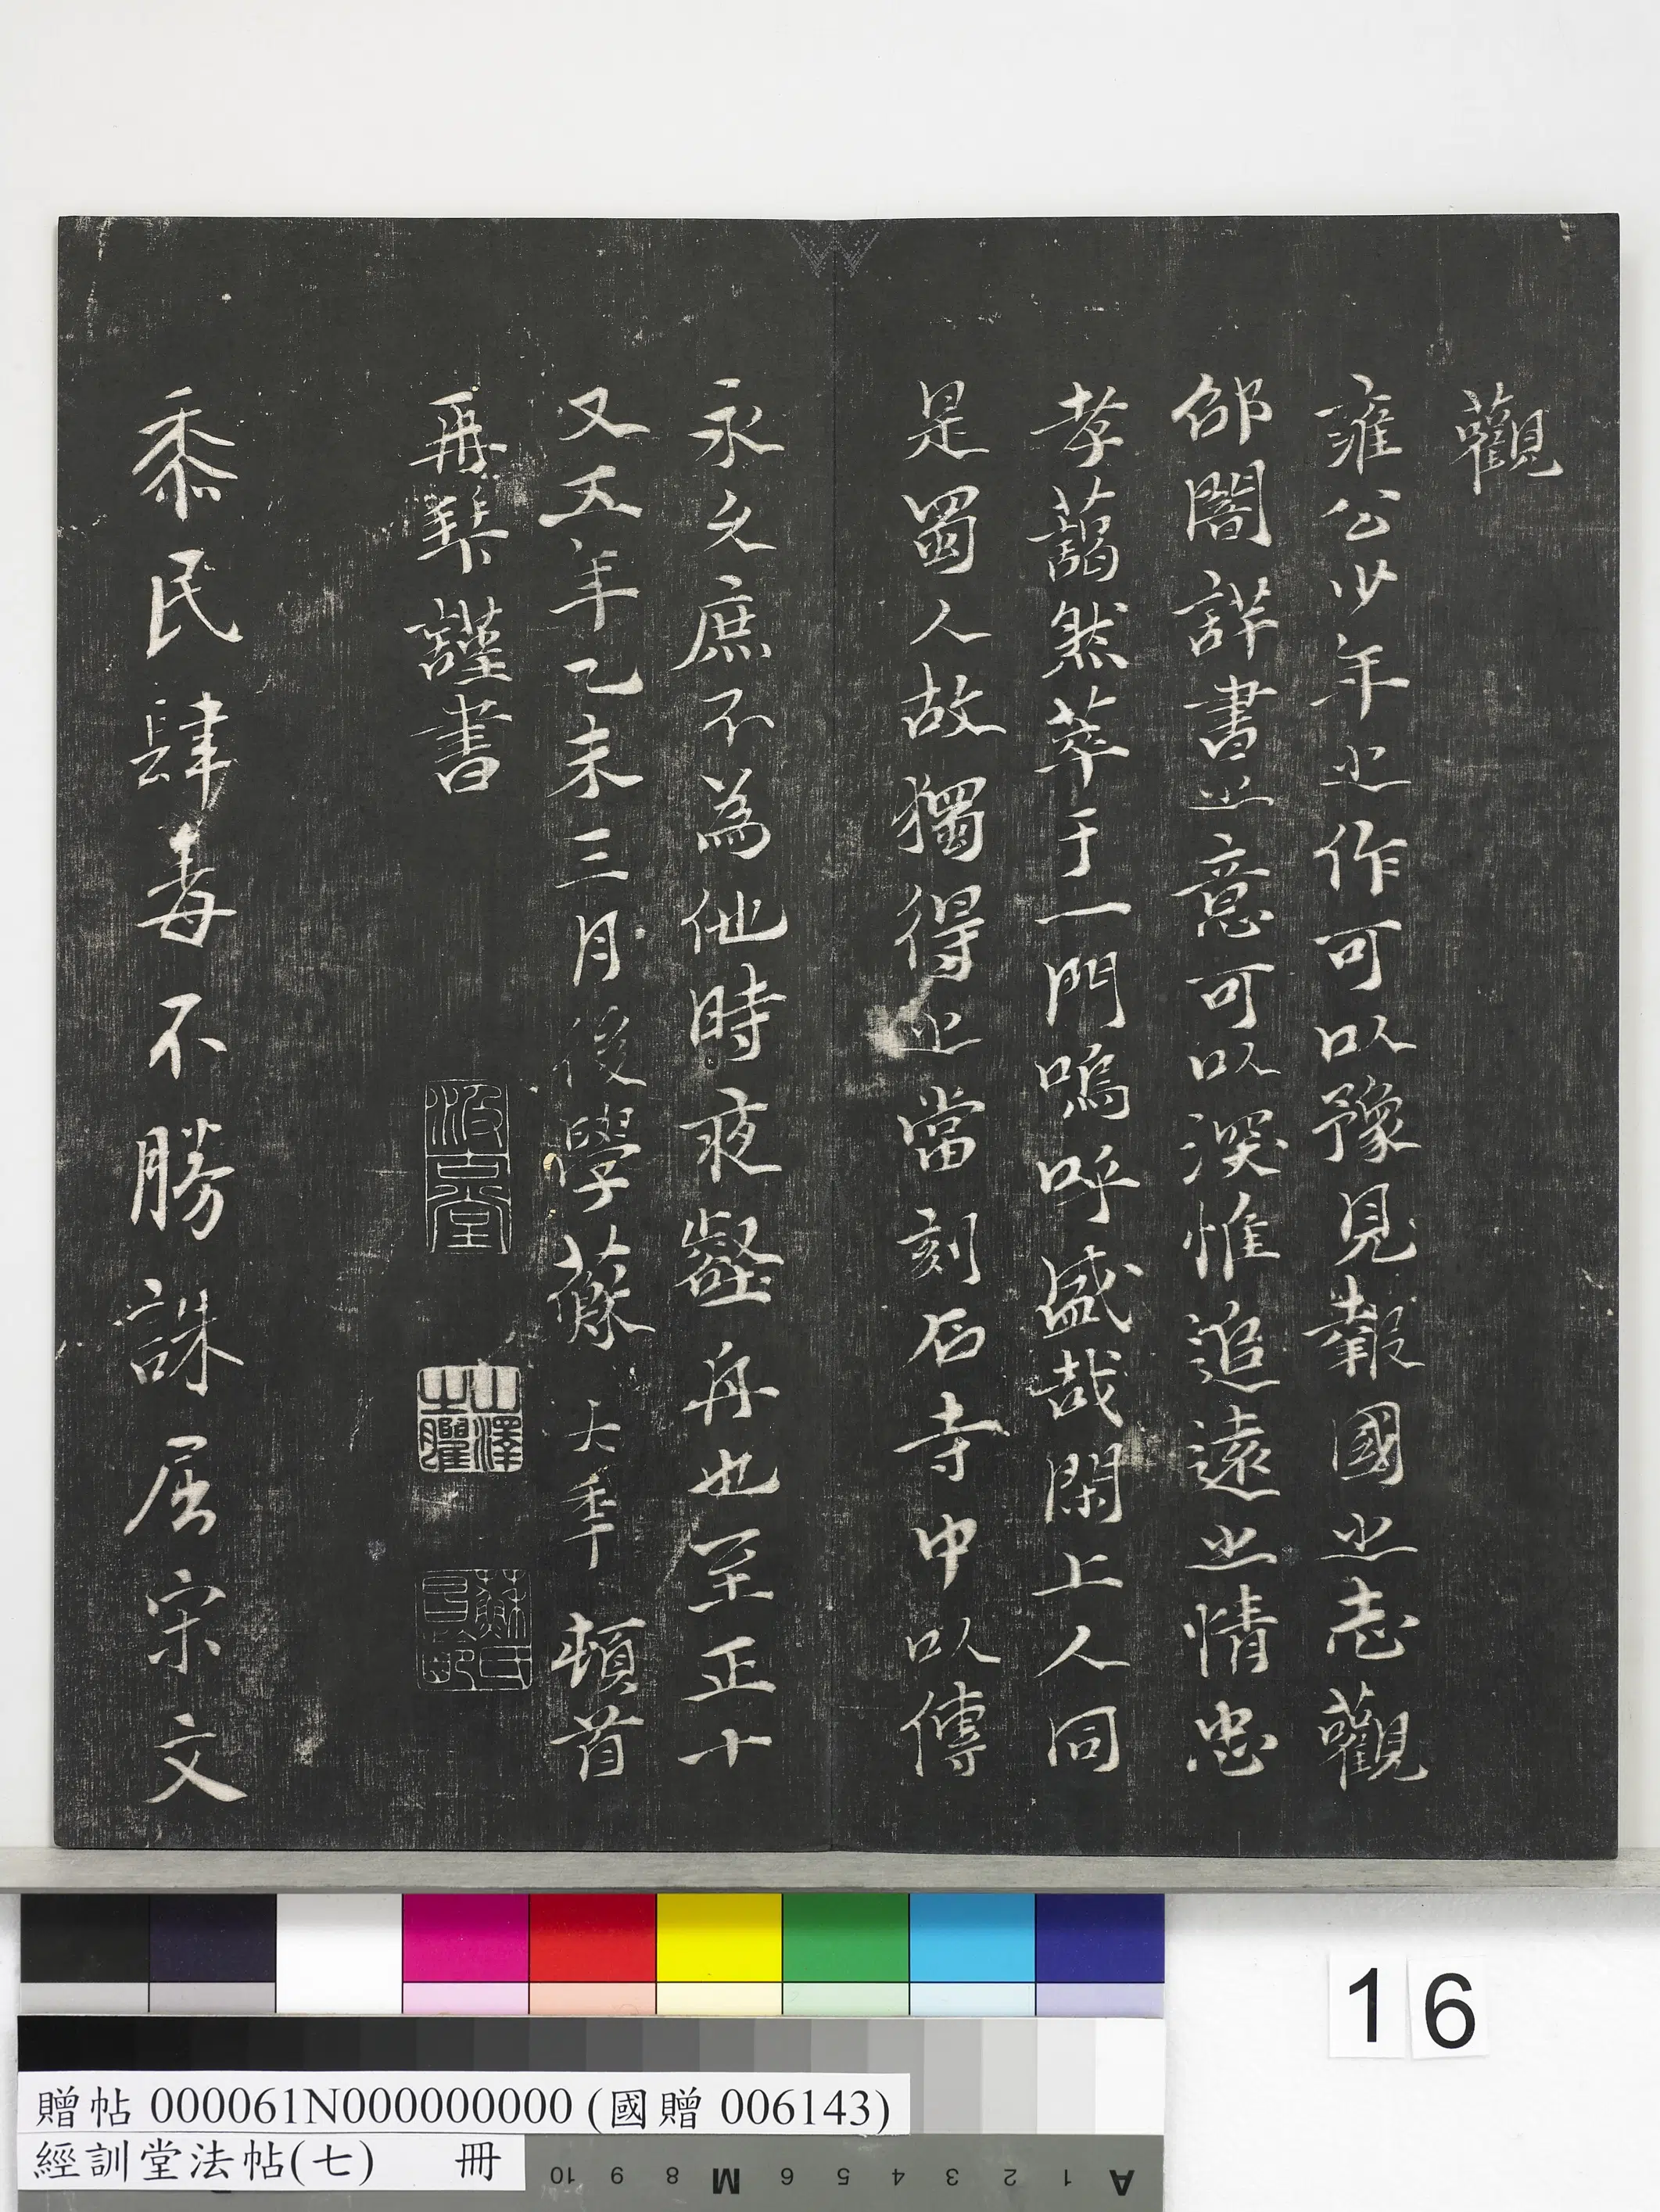 觀
雍公少年之作可以豫見報國之志觀
邵闇詳書之意可以深惟追遠之情忠
孝藹然萃于一門嗚呼盛哉閑上人同
是蜀人故獨得之當刻石寺中以傳
永久庶不為他時夜壑舟也至正十
又五年乙未三月後學蘇大年頓首
再拜謹書
汲古堂
山澤之臞
蘇氏昌齡
黍民肆毒不勝誅屈宋文
16
贈帖 000061N000000000 (國贈 006143)
經訓堂法帖(七) 冊
10 9 8 M 6 5 4 3 2 1 A